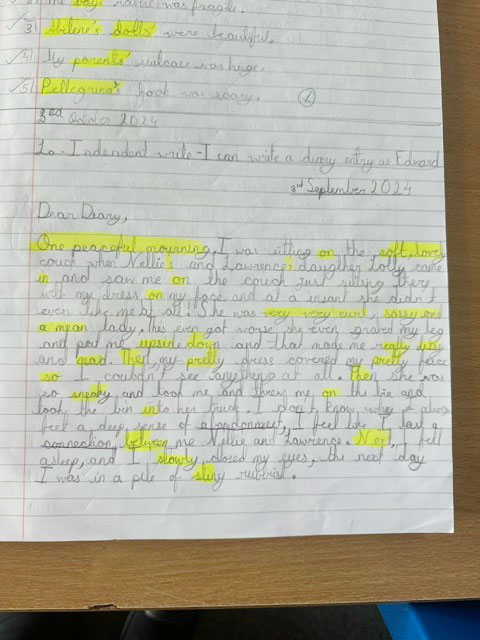 rabbit was fragile.
3) Abilene's dolls' were beautiful.
4) My parents' suitcase was huge.
5) Pellegrina's book was scary.
3rd October 2024
Lo - Indendant write - I can write a diary entry as Edward
3rd September 2024
Dear Diary,
One peaceful mourning, I was sitting on the soft, lovely
couch when Nellie's and Lawrence's daughter Lolly came
in and saw me on the couch just sitting there
with my dress on my face and at a insant she didn't
even like me at all. She was very very cruel, sassy and
a mean lady. This even got worse she even grabed my leg
and put me upside down and that made me really
and mad. Then, my pretty dress covered my pretty face
so I couldn't see anything at all. Then she was
so sneaky and took me and threw me on the bin and
took the bin into her truck. I don't know, why I always
feel a deep sense of abandonment, I feel like I lost a
connection, between me Nellie and Lawrence. Next, I fell
asleep, and I slowly closed my eyes, the next day
I was in a pile of rubbish.